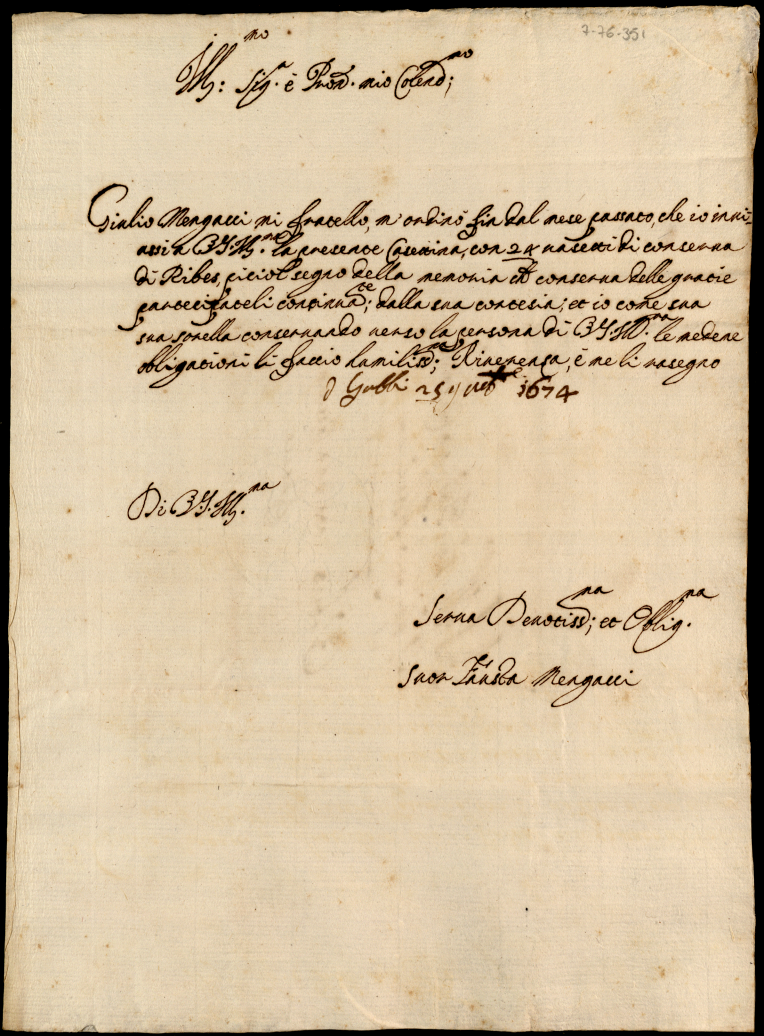 7-76-351
Ill:mo Sig.r e Pron. mio Colend;mo
Giulio Mengacci mi fratello, m'ordinò fin dal mese passato, che io invi-
assi a V.S.Ill.ma la presente Casettina, con 24 vasetti di conserva
di Ribes, piciol segno della memoria che conserva delle gratie
partecipateli continuate; dalla sua cortesia; et io come sua
sua sorella conservando verso la persona di V.S.Ill.ma le medeme
obligationi li faccio humiliss;ma Riverenza, è me li rasegno
Gubbi 25 9vre 1674
Di V.S.Ill.ma
Serva Devotiss;ma et Oblig.ma
Suor Fausta Mengacci